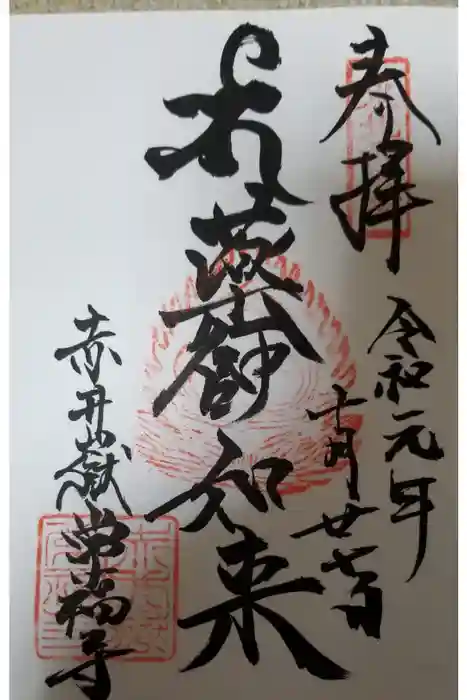 奉拝
令和元年
十月廿七日
薬師如来
赤井嶽
常福寺